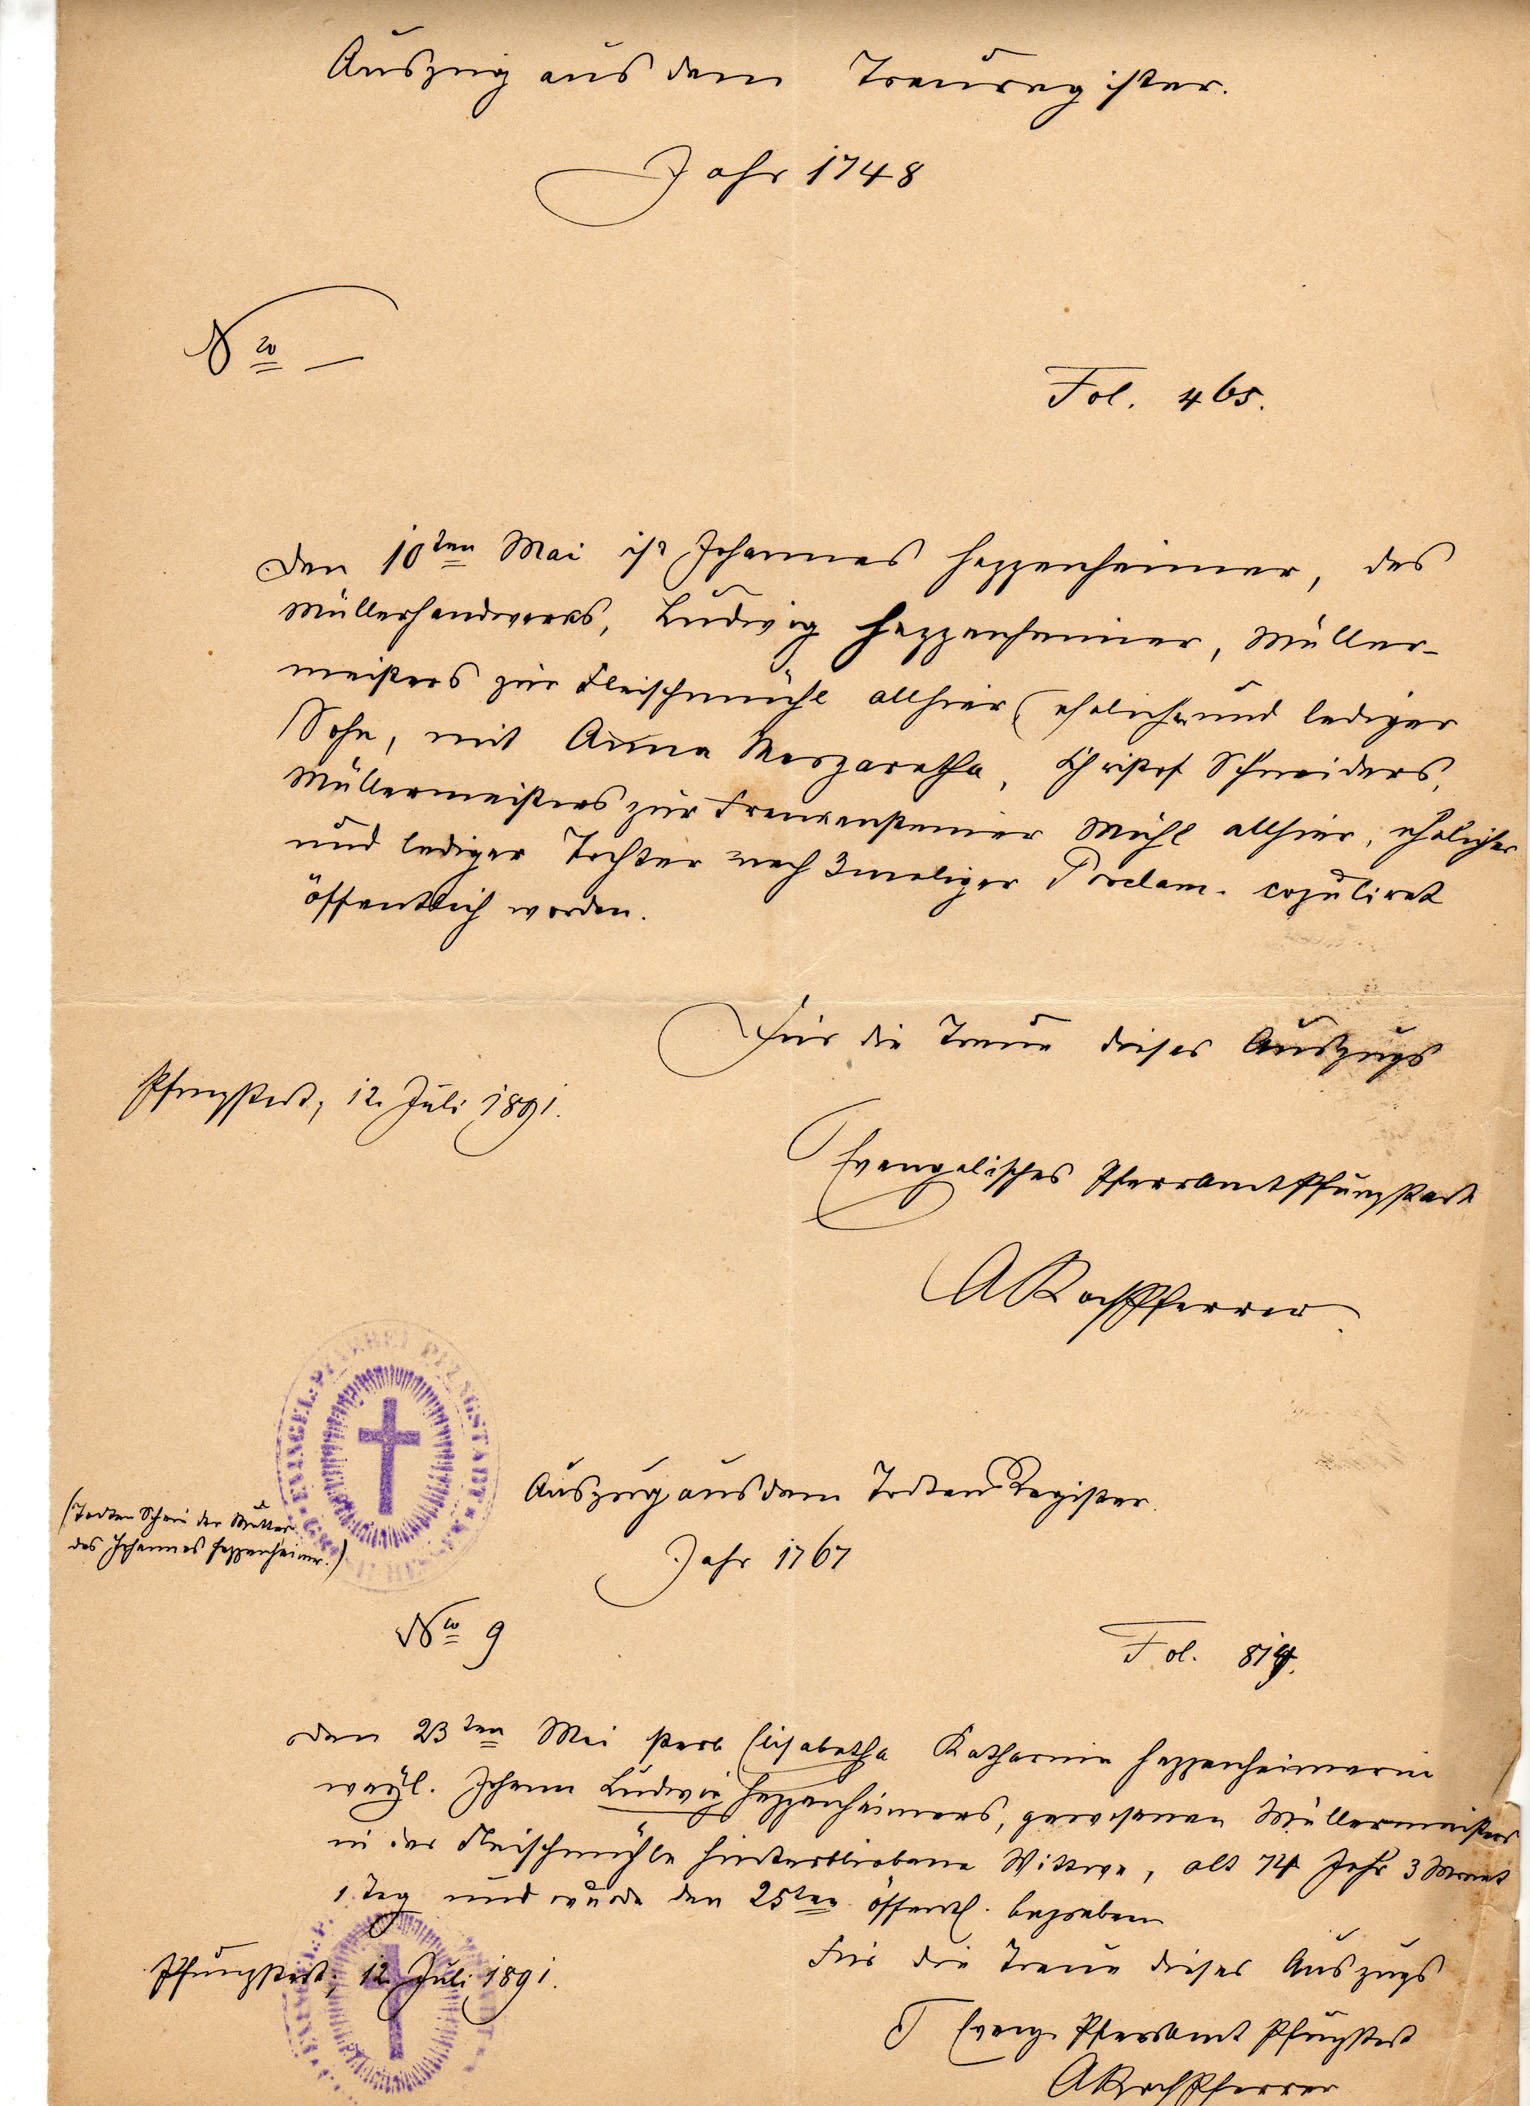 Auszug aus dem Trauregister.
Jahr 1748
No —
Fol. 465.
Den 10ten Mai ist Johannes Heppenheimer, des
Müllerhandwerks, Ludwig Heppenheimer, Müller-
meisters zur Fleischmühl allhier, ehelicher und lediger
Sohn, mit Anna Margaretha, Christof Schneiders,
Müllermeisters zur Frankensteiner Mühl allhier, ehelicher
und lediger Tochter nach 3maliger Proclam. copuliret
öffentlich worden.
Für die Treue dieses Auszugs
Pfungstadt, 12. Juli 1891.
Evangelisches Pfarramt Pfungstadt
A Koch Pfarrer.
EVANGEL. PFARREI PFUNGSTADT
Auszug aus dem Todten Register.
(Todten Schein der Mutter
des Johannes Heppenheimer.)
Jahr 1767
No 9
Fol. 814.
Den 23ten Mai starb Elisabetha Katharina Heppenheimerin
weyl. Johann Ludwig Heppenheimers, gewesenen Müllermeisters
in der Fleischmühle hinterbliebene Wittwe, alt 74 Jahr 3 Monat
1 Tag und wurde den 25ten öffentl. begraben
Für die Treue dieses Auszugs
Pfungstadt, 12. Juli 1891.
Evang. Pfarramt Pfungstadt
A Koch Pfarrer